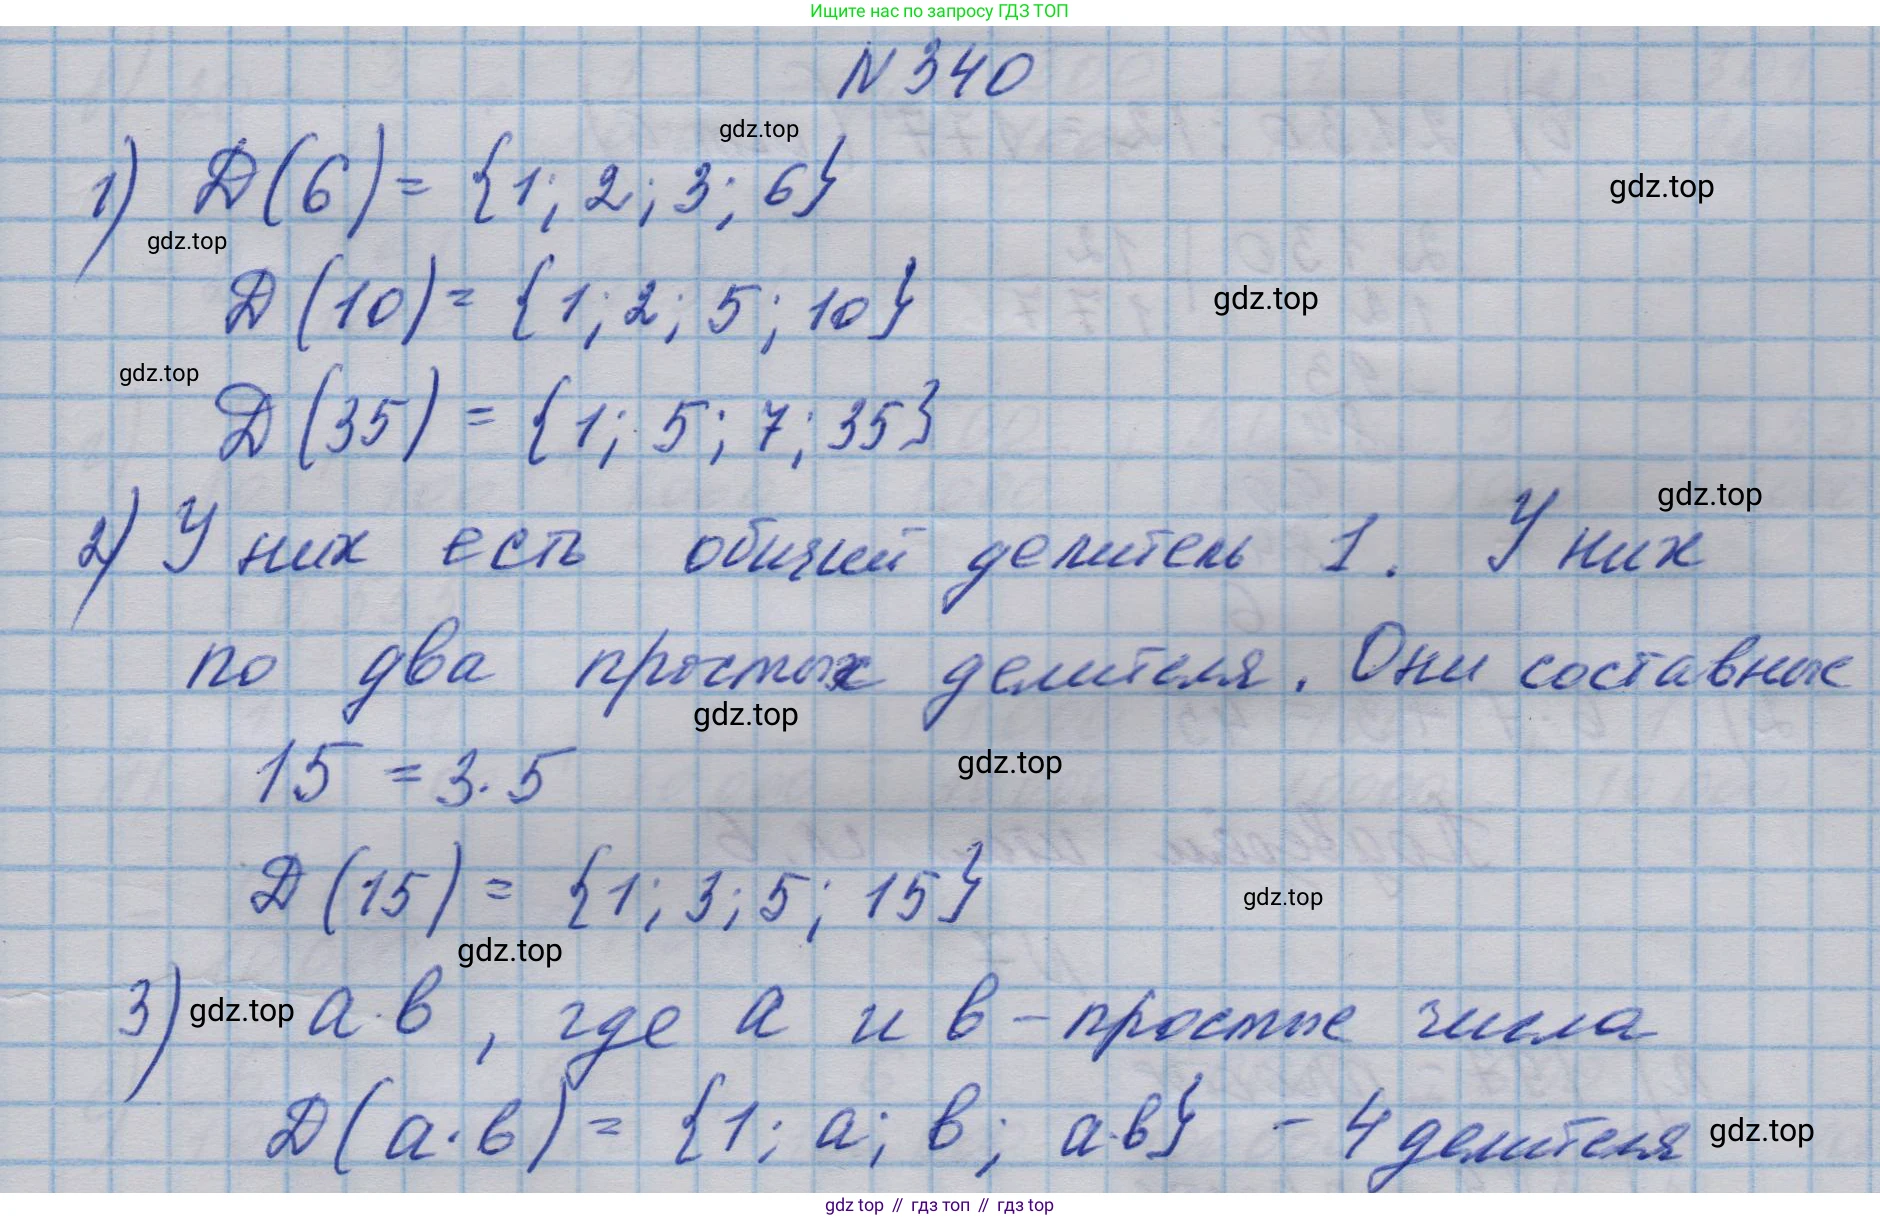 Ищите нас по запросу ГДЗ ТОП
N 340
gdz.top
1) Д(6) = {1; 2; 3; 6}
gdz.top
gdz.top
Д(10) = {1; 2; 5; 10}
gdz.top
gdz.top
Д(35) = {1; 5; 7; 35}
gdz.top
2) У них есть общий делитель 1. У них
по два простых делителя. Они составные
gdz.top
15 = 3·5
gdz.top
Д(15) = {1; 3; 5; 15}
gdz.top
gdz.top
3) gdz.top а·в, где а и в – простые числа
Д(а·в) = {1; а; в; а·в} – 4 делителя
gdz.top
gdz.top // гдз топ // гдз top